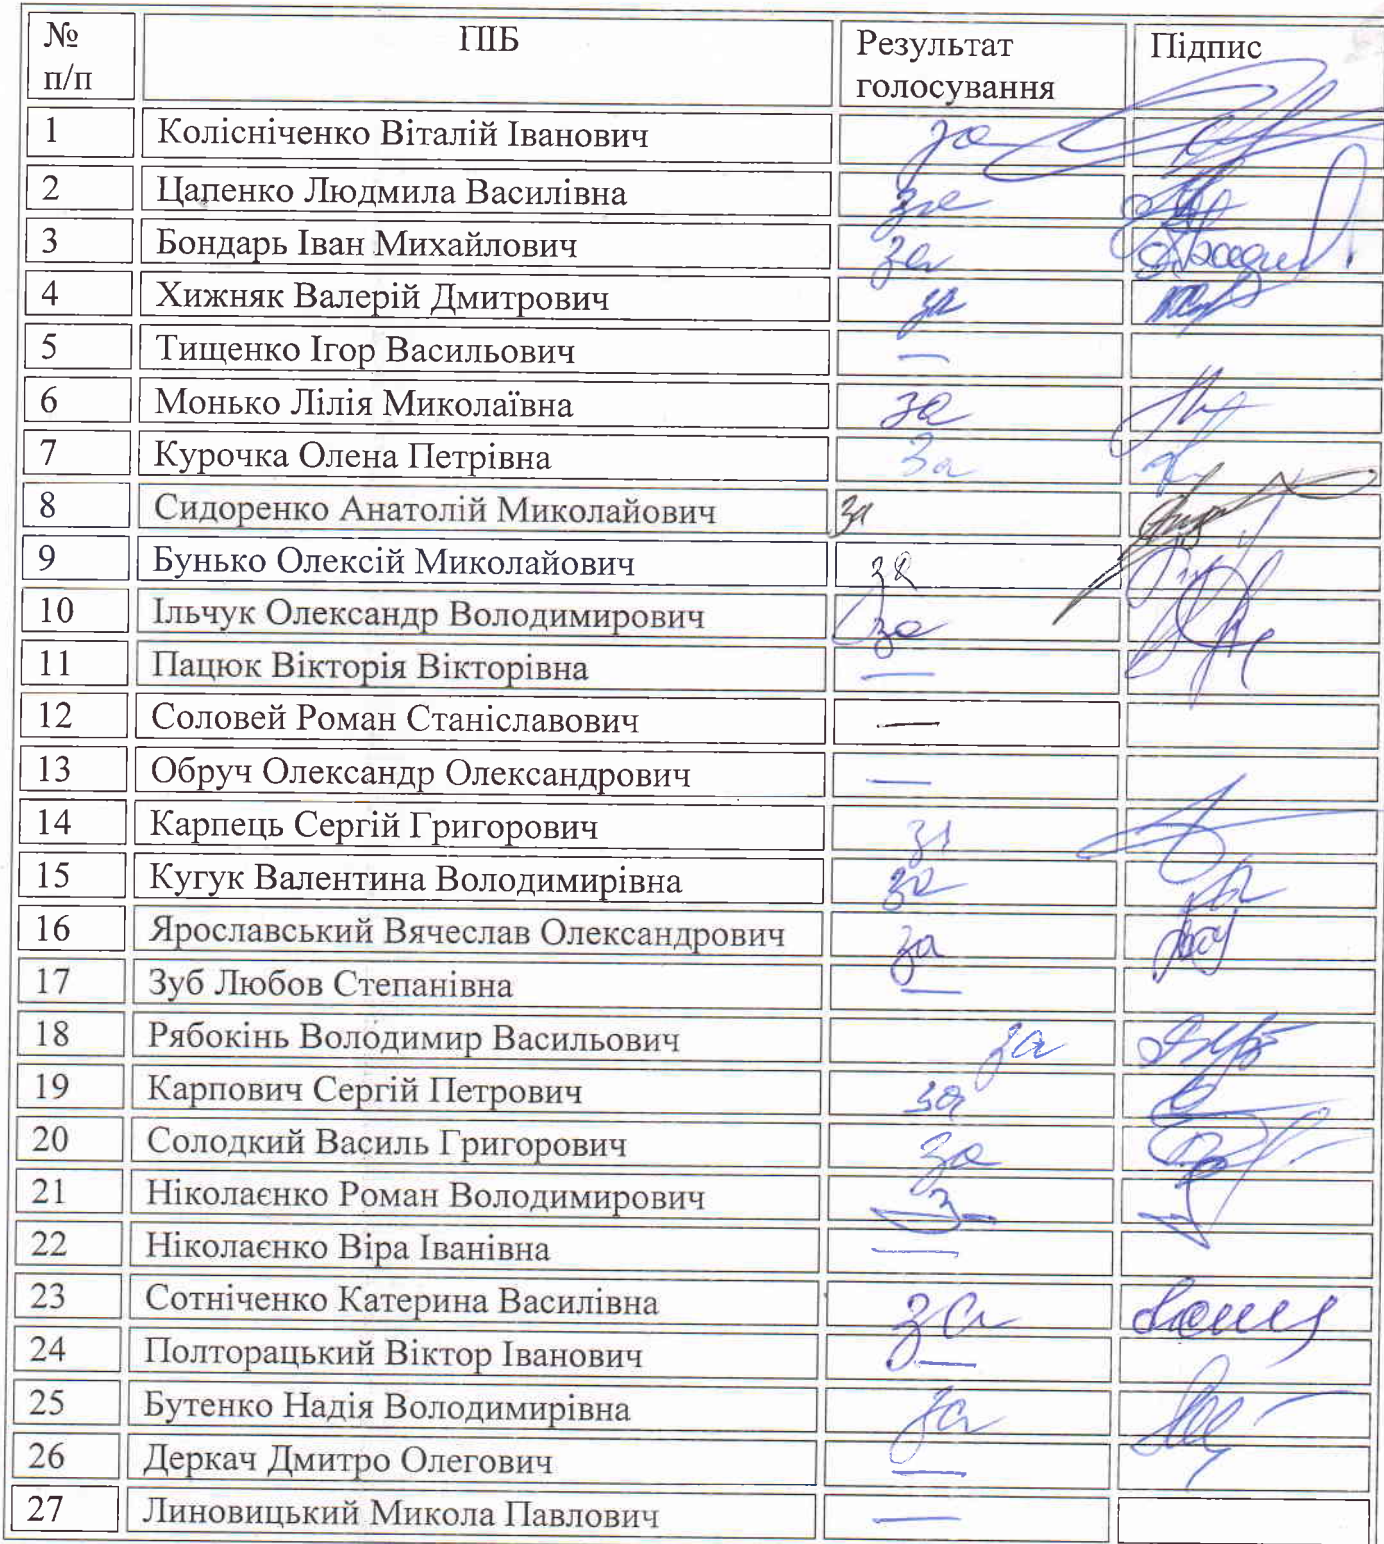 № п/п ПІБ Результат голосування Підпис
1 Колісніченко Віталій Іванович за
2 Цапенко Людмила Василівна за
3 Бондарь Іван Михайлович за
4 Хижняк Валерій Дмитрович за
5 Тищенко Ігор Васильович —
6 Монько Лілія Миколаївна за
7 Курочка Олена Петрівна За
8 Сидоренко Анатолій Миколайович за
9 Бунько Олексій Миколайович за
10 Ільчук Олександр Володимирович за
11 Пацюк Вікторія Вікторівна —
12 Соловей Роман Станіславович —
13 Обруч Олександр Олександрович —
14 Карпець Сергій Григорович за
15 Кугук Валентина Володимирівна за
16 Ярославський Вячеслав Олександрович за
17 Зуб Любов Степанівна —
18 Рябокінь Володимир Васильович за
19 Карпович Сергій Петрович за
20 Солодкий Василь Григорович за
21 Ніколаєнко Роман Володимирович
22 Ніколаєнко Віра Іванівна —
23 Сотніченко Катерина Василівна за
24 Полторацький Віктор Іванович —
25 Бутенко Надія Володимирівна за
26 Деркач Дмитро Олегович —
27 Линовицький Микола Павлович —